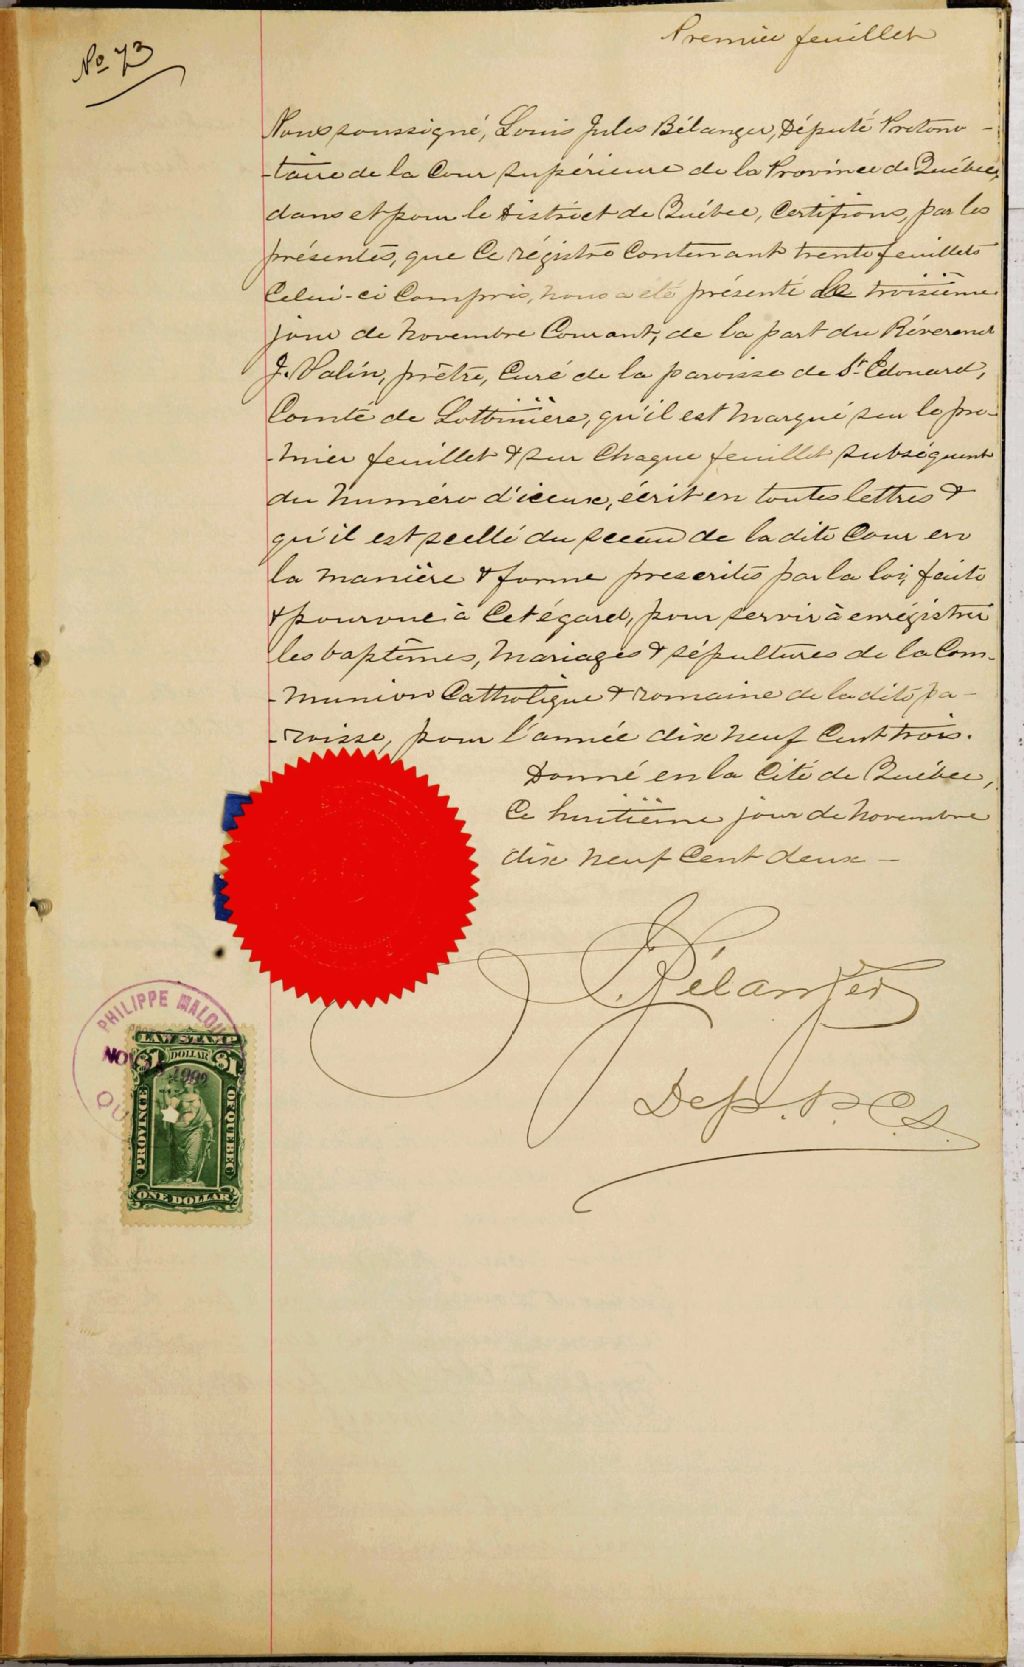 Premier feuillet
No 73
Nous soussigné, Louis Jules Bélanger, Député Protono-
-taire de la Cour Supérieure de la Province de Québec,
dans et pour le District de Québec, Certifions, par les
présentes, que Ce régistre Contenant trente feuillets
Celui-ci Compris, nous a été présenté le troisième
jour de Novembre Courant, de la part du Révérend
J. Valin, prêtre, Curé de la paroisse de St. Edouard,
Comté de Lotbinière, qu'il est marqué sur le pre-
-mier feuillet & sur Chaque feuillet subséquent
du Numéro d'iceux, écrit en toutes lettres &
qu'il est scellé du sceau de la dite Cour en
la manière & forme prescrites par la loi, faite
& pourvue à Cet égard, pour servir à enrégistrer
les baptêmes, Mariages & sépultures de la Com-
-munion Catholique & romaine de la dite pa-
-roisse, pour l'année dix neuf Cent trois.
Donné en la Cité de Québec,
Ce huitième jour de Novembre
dix neuf Cent deux —
J. Bélanger
Dep. P. C. S.
PHILIPPE MALOU
NOV 1902
QU
LAW STAMP
$1 DOLLAR $1
PROVINCE
OF QUEBEC
ONE DOLLAR